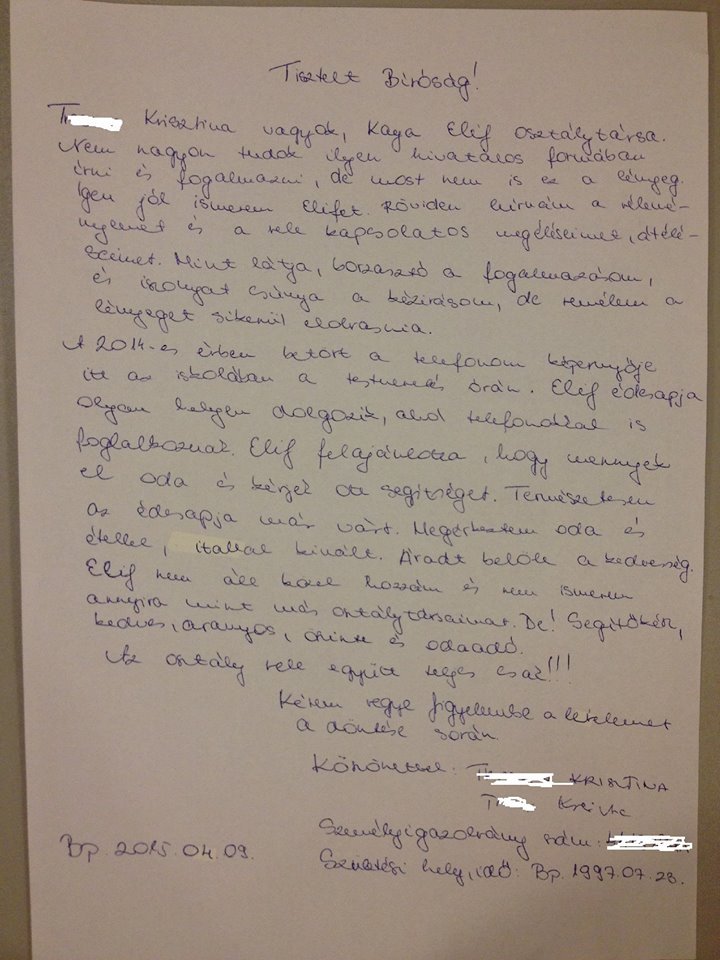 Tisztelt Bíróság!
T Krisztina vagyok, Kaya Elif osztálytársa.
Nem nagyon tudok ilyen hivatalos formában
írni és fogalmazni, de most nem is ez a lényeg.
Igen jól ismerem Elifet. Röviden leírnám a vélemé-
nyemet és a vele kapcsolatos megéléseimet, átélé-
seimet. Mint látja, borzasztó a fogalmazásom,
és iszonyat csúnya a kézírásom, de remélem a
lényeget sikerül elolvasnia.
A 2014-es évben betört a telefonom képernyője
itt az iskolában a testnevelés órán. Elif édesapja
olyan helyen dolgozik, ahol telefonokkal is
foglalkoznak. Elif felajánlotta, hogy mennyek
el oda és kérjek ott segítséget. Természetesen
az édesapja már várt. Megérkeztem oda és
étellel, itallal kínált. Áradt belőle a kedvesség.
Elif nem áll közel hozzám és nem ismerem
annyira mint más osztálytársaimat. De! Segítőkész,
kedves, aranyos, őszinte és odaadó.
Az osztály vele együtt teljes csak!!!
Kérem vegye figyelembe a levelemet
a döntése során.
Köszönettel: T KRISZTINA
T
Személyigazolvány szám:
Bp. 2015.04.09.
Születési hely, idő: Bp. 1997.07.28.